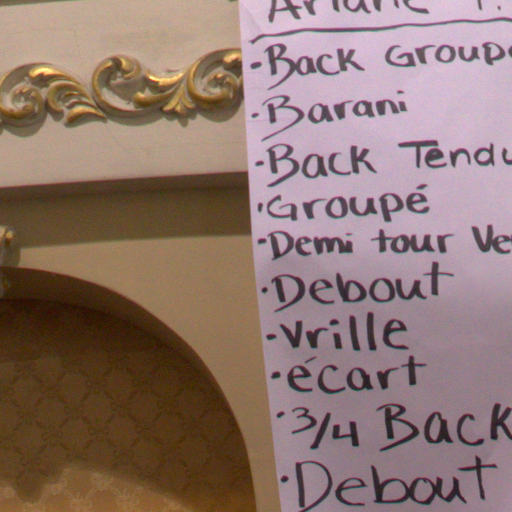 · Back Group
· Barani
· Back Tendu
· Groupé
· Demi tour Ve
· Debout
· Vrille
· écart
· 3/4 Back
· Debout